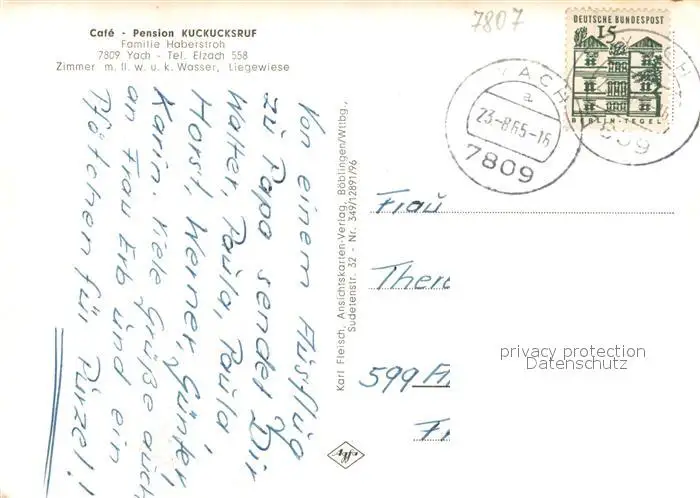 7807
Café - Pension KUCKUCKSRUF
Familie Haberstroh
7809 Yach - Tel. Elzach 558
Zimmer m. fl. w. u. k. Wasser, Liegewiese
DEUTSCHE BUNDESPOST
15
BERLIN-TEGEL
YACH
a
23-8.65-16
7809
Von einem Ausflug
zu Papa sendet Dir
Walter, Paula, Paula,
Horst, Werner, Günter,
Karin. Viele Grüße auch
an Frau Erb und ein
Pfötchen für Purzel!
Karl Fleisch, Ansichtskarten-Verlag, Böblingen/Wttbg.,
Sudetenstr. 32 - Nr. 349/12891/96
Agfa
Frau
599
privacy protection
Datenschutz